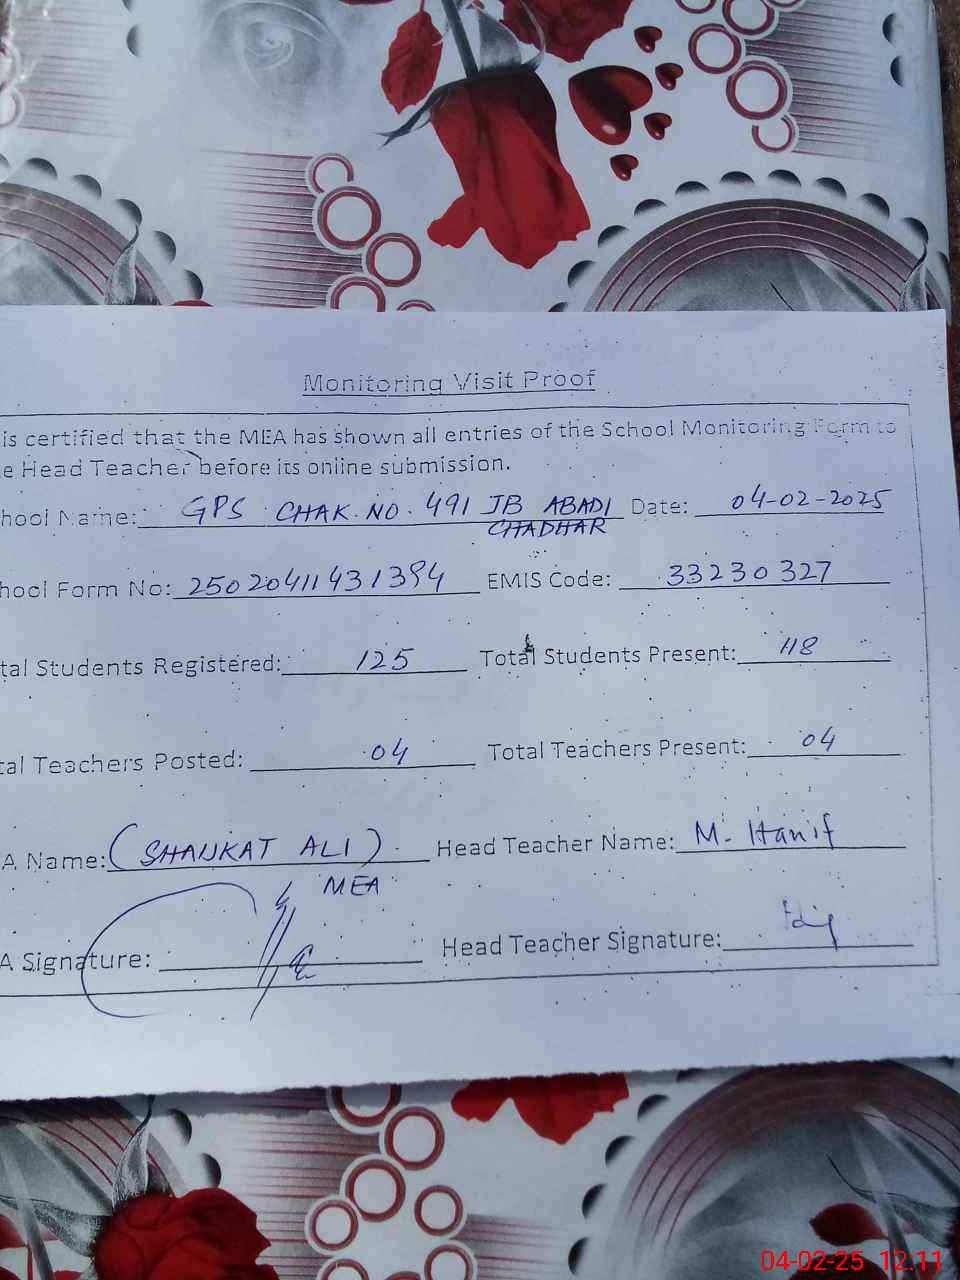 Monitoring Visit Proof
is certified that the MEA has shown all entries of the School Monitoring Form to
e Head Teacher before its online submission.
hool Name: GPS CHAK. NO. 491 JB ABADI Date: 04-02-2025
CHADHAR
hool Form No: 25020411431394 EMIS Code: 33230327
tal Students Registered: 125 Total Students Present: 118
tal Teachers Posted: 04 Total Teachers Present: 04
A Name: (SHAUKAT ALI) Head Teacher Name: M. Hanif
MEA
A Signature: Head Teacher Signature:
04-02-25 12:11